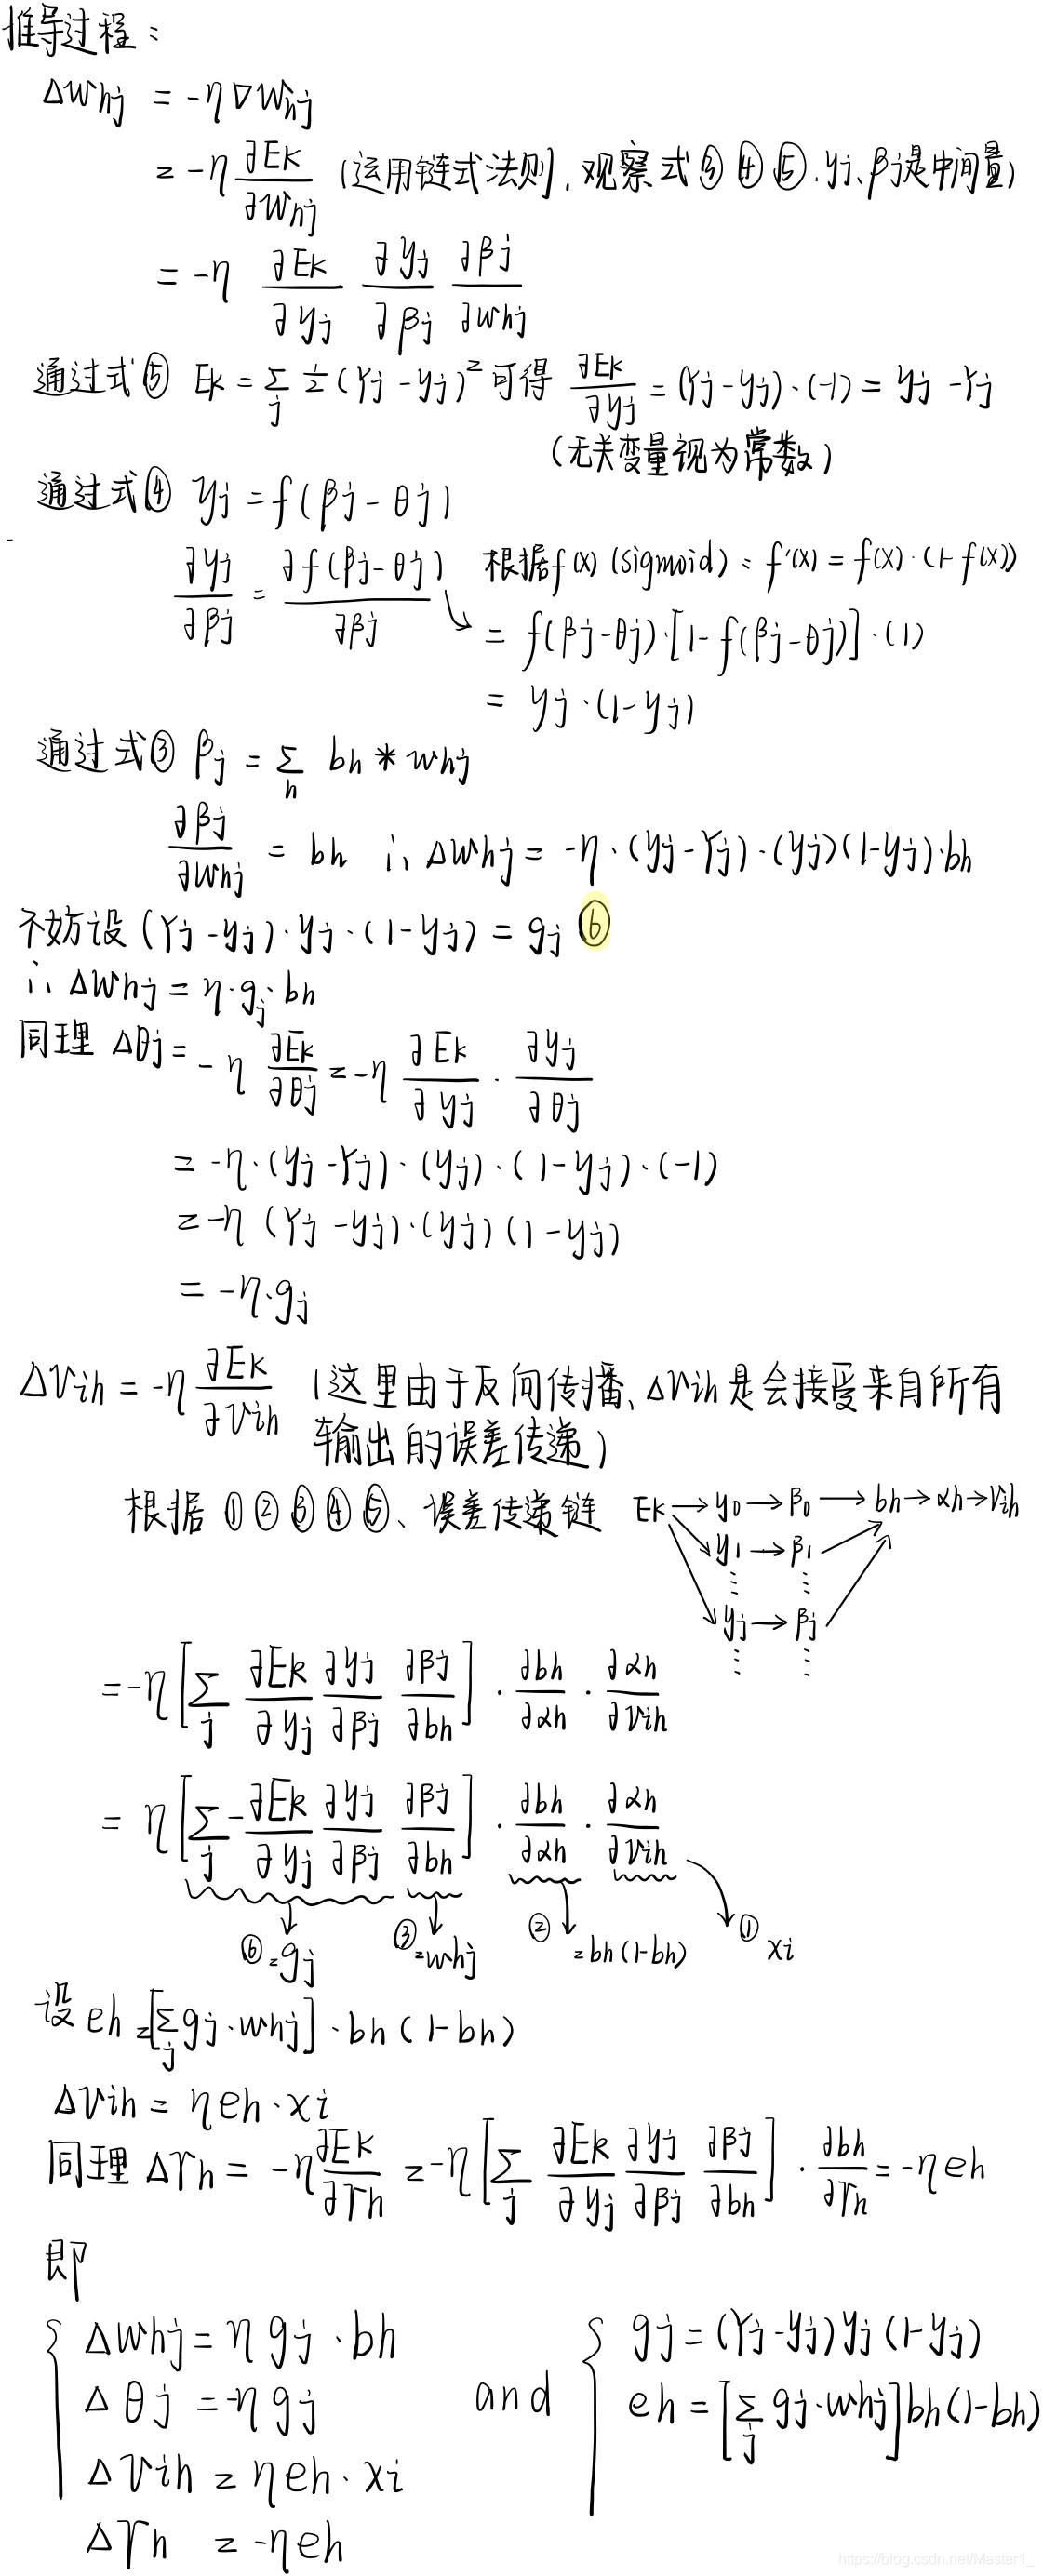 推导过程：
Δwhj = -η∇Whj
= -η ∂Ek/∂Whj (运用链式法则，观察式③④⑤，yj、βj是中间量)
= -η ∂Ek/∂yj ∂yj/∂βj ∂βj/∂whj
通过式⑤ Ek = Σj ½(Yj - yj)² 可得 ∂Ek/∂yj = (Yj - yj)·(-1) = yj - Yj
(无关变量视为常数)
通过式④ yj = f(βj - θj)
∂yj/∂βj = ∂f(βj - θj)/∂βj 根据f(x) (sigmoid)：f'(x) = f(x)·(1-f(x))
= f(βj-θj)·[1-f(βj-θj)]·(1)
= yj·(1-yj)
通过式③ βj = Σh bh * whj
∂βj/∂Whj = bh ∴ Δwhj = -η·(yj-Yj)·(yj)(1-yj)·bh
不妨设 (Yj - yj)·yj·(1-yj) = gj ⑥
∴ Δwhj = η·gj·bh
同理 Δθj = -η ∂Ek/∂θj = -η ∂Ek/∂yj · ∂yj/∂θj
= -η·(yj-Yj)·(yj)·(1-yj)·(-1)
= -η (Yj - yj)·(yj)(1-yj)
= -η·gj
Δvih = -η ∂Ek/∂vih (这里由于反向传播、Δvih是会接受来自所有
输出的误差传递)
根据 ①②③④⑤、误差传递链 Ek → y0 → β0 → bh → αh → vih
y1 → β1
⋮ ⋮
yj → βj
⋮ ⋮
= -η [Σj ∂Ek/∂yj ∂yj/∂βj ∂βj/∂bh] · ∂bh/∂αh · ∂αh/∂vih
= η [Σj -∂Ek/∂yj ∂yj/∂βj ∂βj/∂bh] · ∂bh/∂αh · ∂αh/∂vih
⑥=gj ③=whj ②=bh(1-bh) ① xi
设 eh = [Σj gj·whj]·bh(1-bh)
Δvih = ηeh·xi
同理 Δγh = -η ∂Ek/∂γh = -η [Σj ∂Ek/∂yj ∂yj/∂βj ∂βj/∂bh] · ∂bh/∂γh = -ηeh
即
{ Δwhj = ηgj·bh and { gj = (Yj-yj)yj(1-yj)
Δθj = -ηgj eh = [Σj gj·whj]bh(1-bh)
Δvih = ηeh·xi
Δγh = -ηeh
https://blog.csdn.net/Master1_